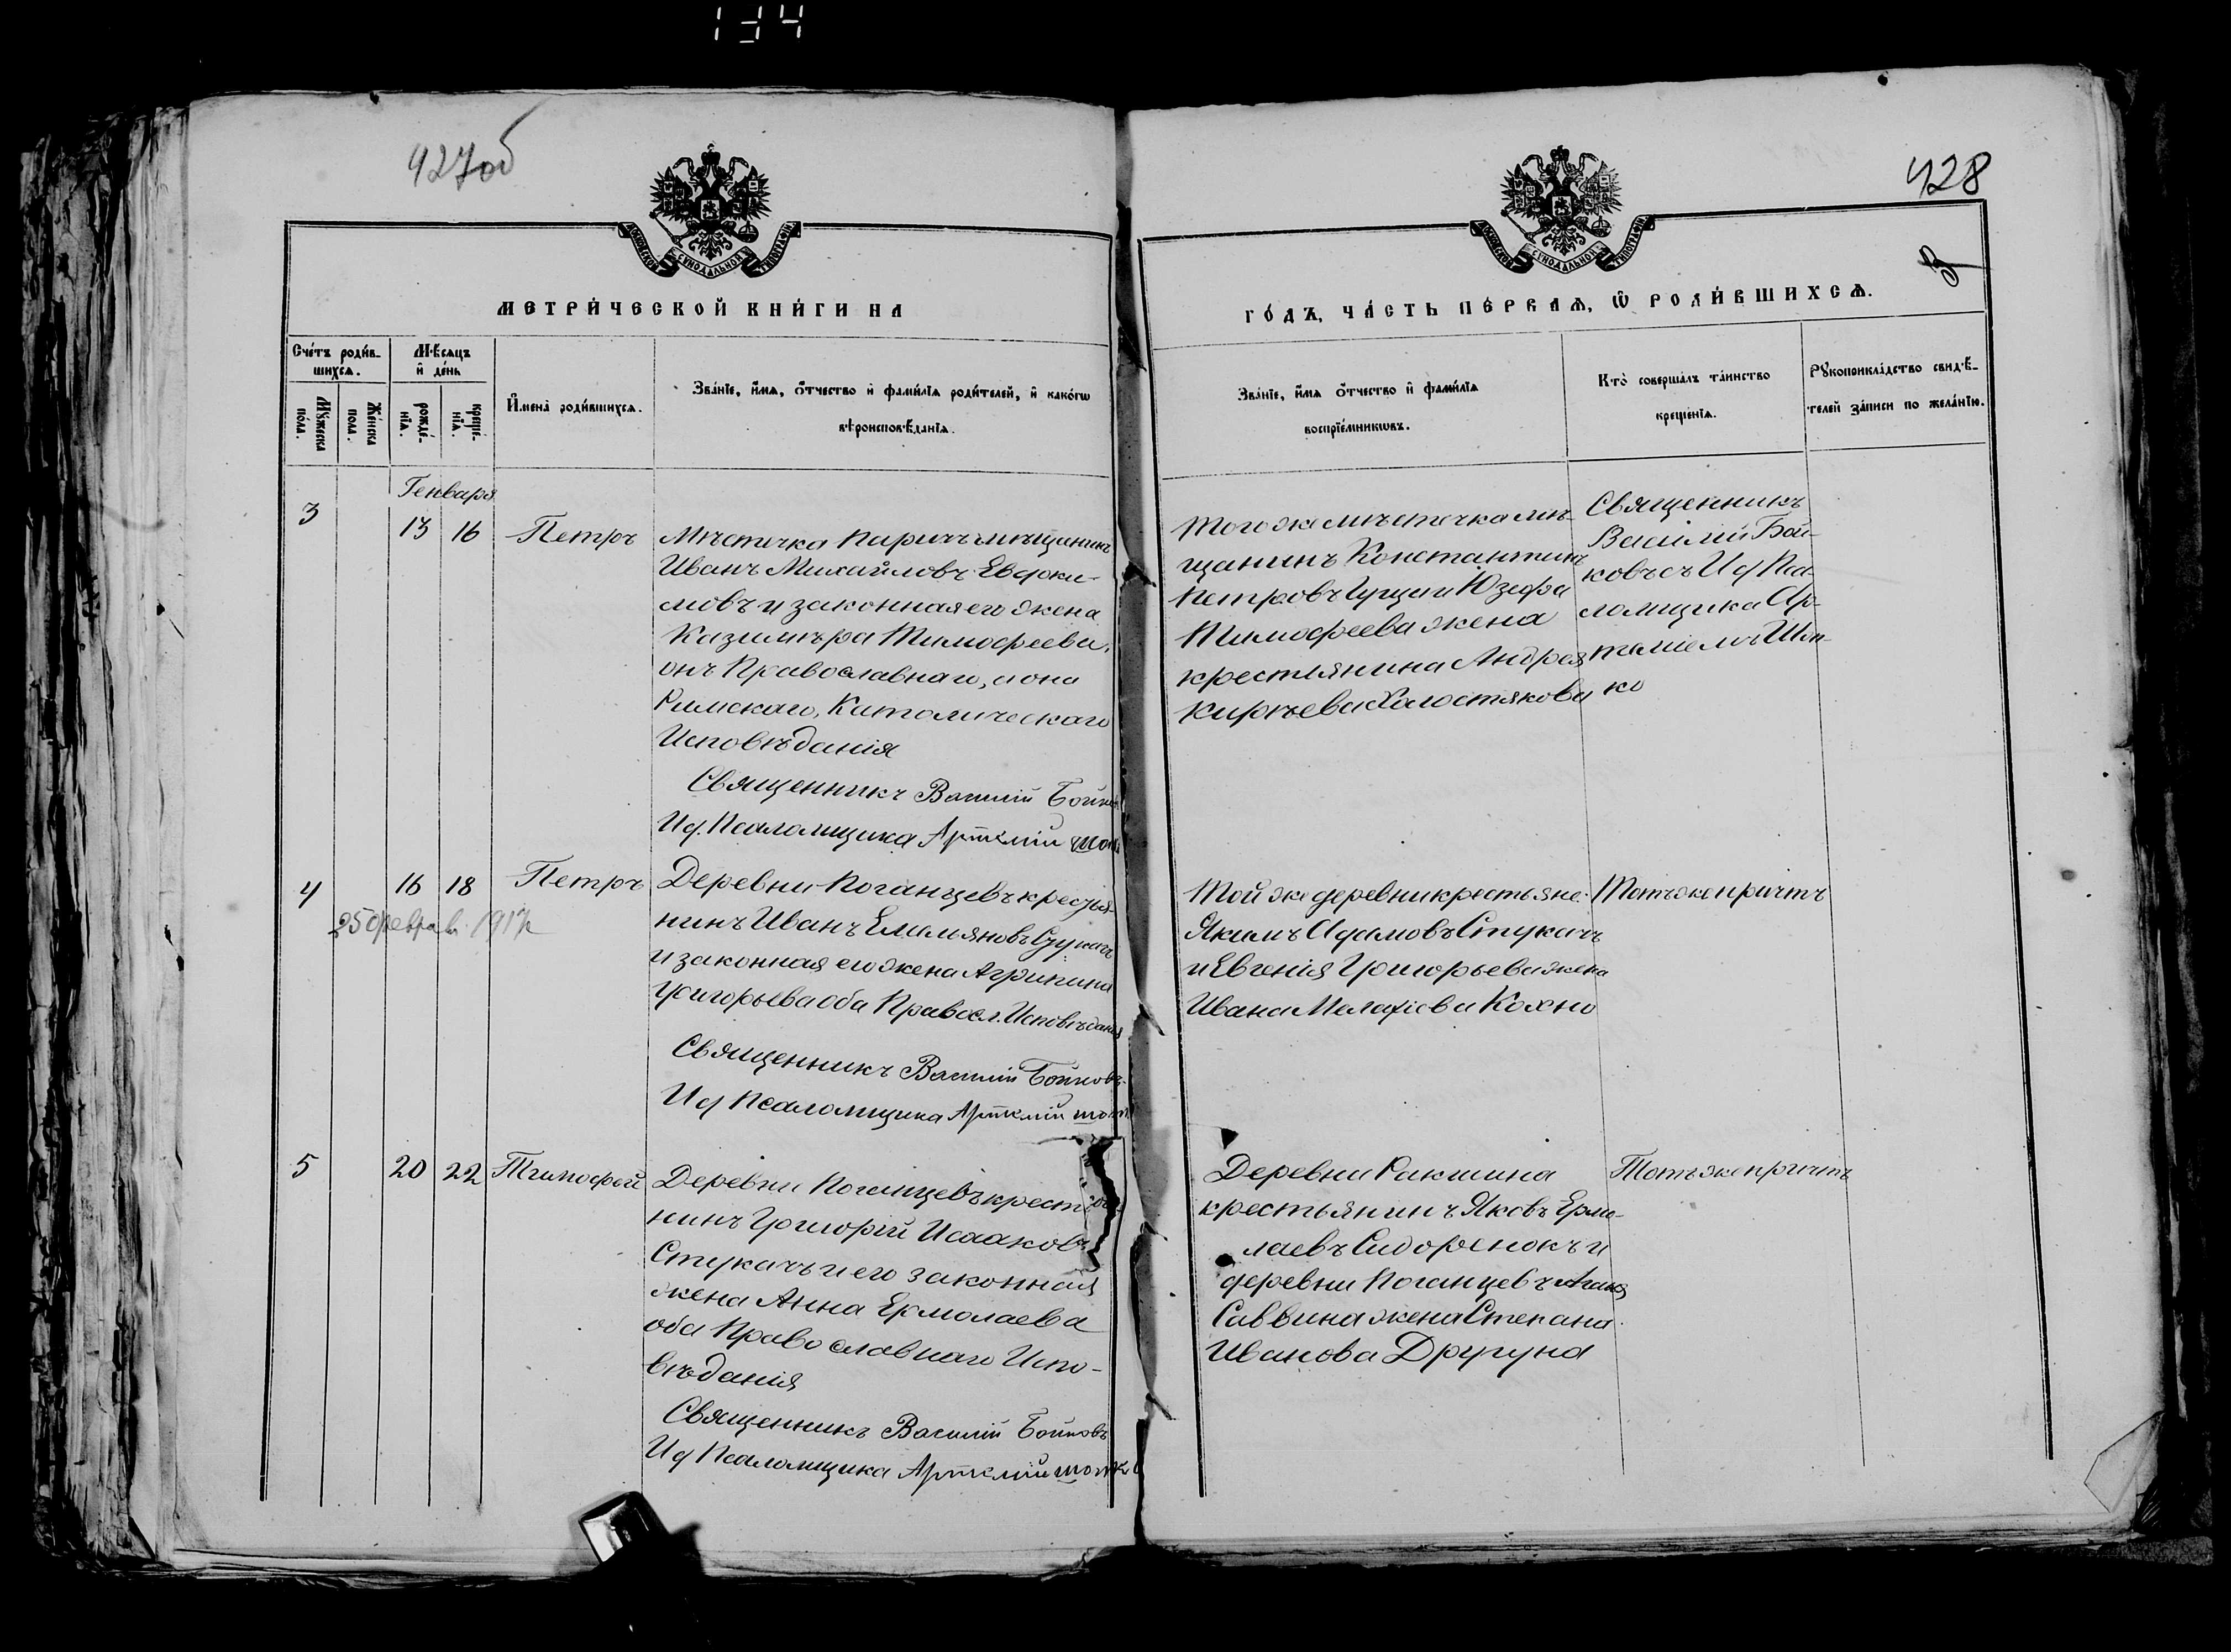 134
427об
428
3
МОСКОВСКОЙ СѴНОДАЛЬНОЙ ТИПОГРАФІИ
МОСКОВСКОЙ СѴНОДАЛЬНОЙ ТИПОГРАФІИ
МЕТРИ́ЧЕСКОЙ КНИ́ГИ НА
ГО́ДЪ, ЧА́СТЬ ПЕ́РВАѦ, Ѽ РОДИ́ВШИХСѦ.
Сче́тъ роди́в-
шихсѧ.
Мꙋ́жеска
по́ла.
Же́нска
пола.
Мѣ́сѧцъ
и҆ де́нь
рожде́-
нїѧ.
креще́-
нїѧ.
И҆мена̀ роди́вшихсѧ.
Зва́нїе, и҆́мѧ, ѻ҆́тчество и҆ фами́лїѧ роди́телей, и҆ како́гѡ
вѣроисповѣ́данїѧ.
Зва́нїе, и҆́мѧ ѻ҆́тчество и҆ фами́лїѧ
воспрїе́мникѡвъ.
Кто̀ соверша́лъ та́инство
креще́нїѧ.
Рꙋкоприкла́дство свидѣ́-
телей за́писи по жела́нїю.
Генваря
3 13 16 Петръ
Мѣстечка Паричъ мѣщанинъ
Иванъ Михайловъ Евдоки-
мовъ и законная его жена
Казимѣра Тимофеева,
онъ Православнаго, а она
Римскаго, Католическаго
Исповѣданія
Священникъ Василій Бойковъ
И д. Псаломщика Артемій
Того же мѣстечка мѣ-
щанинъ Константинъ
Петровъ и Юзефа
Тимофеева жена
крестьянина Андрея
Кирѣева Холостякова
Священникъ
Василій Бой-
ковъ съ И д Пса-
ломщика Ар-
теміемъ Шот-
ко
4 16 18 Петръ
25 феврал. 1917г
Деревни Поганцевъ крестья-
нинъ Иванъ Емельяновъ Стукачъ
и законная его жена Агрипина
Григорьева оба Правосл. Исповѣданія
Священникъ Василій Бойковъ
И д Псаломщика Артемій
Той же деревни крестьяне:
Якимъ Адамовъ Стукачъ
и Евгенія Григорьева жена
Ивана Мелахіова Кохно
Тотъ же причтъ
5 20 22 Тимофей
Деревни Поганцевъ крестья-
нинъ Григорій Исааковъ
Стукачъ и его законная
жена Анна Ермолаева
оба Православнаго Испо-
вѣданія
Священникъ Василій Бойковъ
И д Псаломщика Артемій Шотко
Деревни Ракшина
крестьянинъ Яковъ Ермо-
лаевъ Сидоренокъ и
деревни Поганцевъ
Саввина жена Степана
Иванова Другуна
Тотъ же причтъ